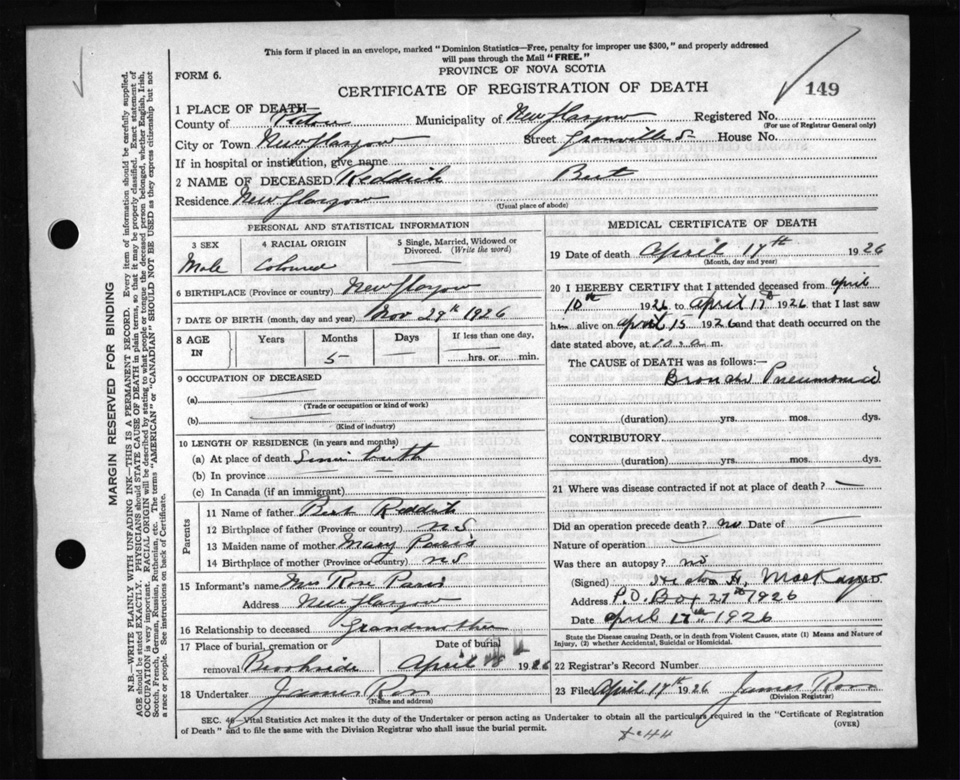 This form if placed in an envelope, marked "Dominion Statistics—Free, penalty for improper use $300," and properly addressed
will pass through the Mail "FREE."
FORM 6.
PROVINCE OF NOVA SCOTIA
CERTIFICATE OF REGISTRATION OF DEATH
149
1 PLACE OF DEATH
County of Pictou Municipality of New Glasgow Registered No.
(For use of Registrar General only)
City or Town New Glasgow Street Granville S. House No.
If in hospital or institution, give name
2 NAME OF DECEASED Reddick Bert
Residence New Glasgow
(Usual place of abode)
PERSONAL AND STATISTICAL INFORMATION
3 SEX 4 RACIAL ORIGIN 5 Single, Married, Widowed or
Divorced. (Write the word)
Male Coloured
6 BIRTHPLACE (Province or country) New Glasgow
7 DATE OF BIRTH (month, day and year) Nov 29th 1926
8 AGE IN Years Months Days If less than one day,
5 hrs. or min.
9 OCCUPATION OF DECEASED
(a)
(Trade or occupation or kind of work)
(b)
(Kind of industry)
10 LENGTH OF RESIDENCE (in years and months)
(a) At place of death Since birth
(b) In province
(c) In Canada (if an immigrant)
Parents
11 Name of father Bert Reddick
12 Birthplace of father (Province or country) N S
13 Maiden name of mother Mary Paris
14 Birthplace of mother (Province or country) N S
15 Informant's name Mrs Rose Paris
Address New Glasgow
16 Relationship to deceased Grandmother
17 Place of burial, cremation or Date of burial
removal Brookside April 1926
18 Undertaker James Ross
(Name and address)
MEDICAL CERTIFICATE OF DEATH
19 Date of death April 17th 1926
(Month, day and year)
20 I HEREBY CERTIFY that I attended deceased from April
10th 1926 to April 17th 1926 that I last saw
him alive on April 15 1926 and that death occurred on the
date stated above, at 10 a m.
The CAUSE of DEATH was as follows:—
Broncho Pneumonia
(duration) yrs. mos. dys.
CONTRIBUTORY
(duration) yrs. mos. dys.
21 Where was disease contracted if not at place of death?
Did an operation precede death? no Date of
Nature of operation
Was there an autopsy? no
(Signed) H. MacKay
Address P.O. Box 27 1926
Date April 17th 1926
State the Disease causing Death, or in death from Violent Causes, state (1) Means and Nature of
Injury, (2) whether Accidental, Suicidal or Homicidal.
22 Registrar's Record Number
23 Filed April 17th 1926 James Ross
(Division Registrar)
SEC. 46—Vital Statistics Act makes it the duty of the Undertaker or person acting as Undertaker to obtain all the particulars required in the "Certificate of Registration
of Death" and to file the same with the Division Registrar who shall issue the burial permit.
(OVER)
MARGIN RESERVED FOR BINDING
N.B.—WRITE PLAINLY WITH UNFADING INK—THIS IS A PERMANENT RECORD. Every item of information should be carefully supplied.
AGE should be stated EXACTLY. PHYSICIANS should STATE CAUSE OF DEATH in plain terms, so that it may be properly classified. Exact statement of
OCCUPATION is very important. RACIAL ORIGIN will be described by stating to what people or tongue the deceased person belonged, whether English, Irish,
Scotch, French, German, Russian, Ruthenian, etc. The terms "AMERICAN" or "CANADIAN" SHOULD NOT BE USED as they express citizenship but not
a race or people. See instructions on back of Certificate.